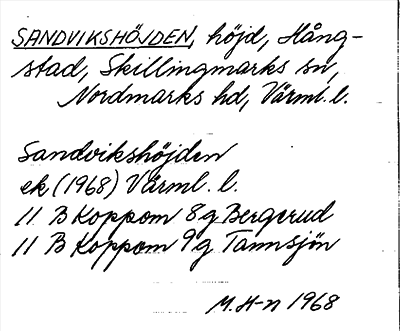 SANDVIKSHÖJDEN, höjd, Hång-
stad, Skillingmarks sn,
Nordmarks hd, Värml. l.
Sandvikshöjden
ek (1968) Värml. l.
11 B Koppom 8g Bergerud
11 B Koppom 9g Tannsjön
M. H-n 1968